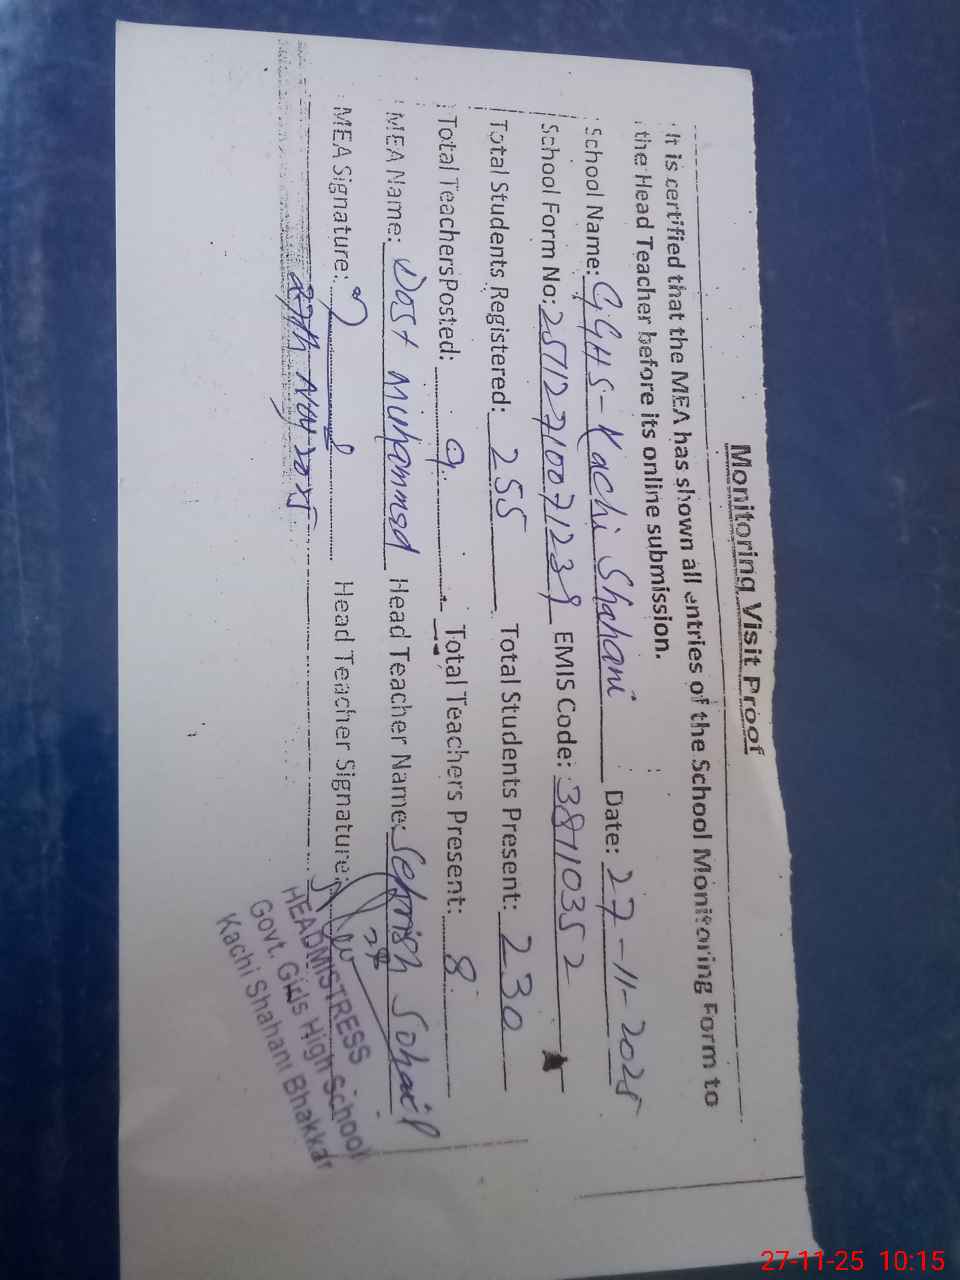 Monitoring Visit Proof
It is certified that the MEA has shown all entries of the School Monitoring Form to
the Head Teacher before its online submission.
School Name: GGHS-Kachi Shahani Date: 27-11-2025
School Form No: EMIS Code: 38110352
Total Students Registered: 255 Total Students Present: 230
Total Teachers Posted: 9 Total Teachers Present: 8
MEA Name: Dost Muhammad Head Teacher Name: Sehrish Sohail
MEA Signature: Head Teacher Signature:
27th Nov 2025
HEADMISTRESS
Govt. Girls High School
Kachi Shahani Bhakkar
27-11-25 10:15